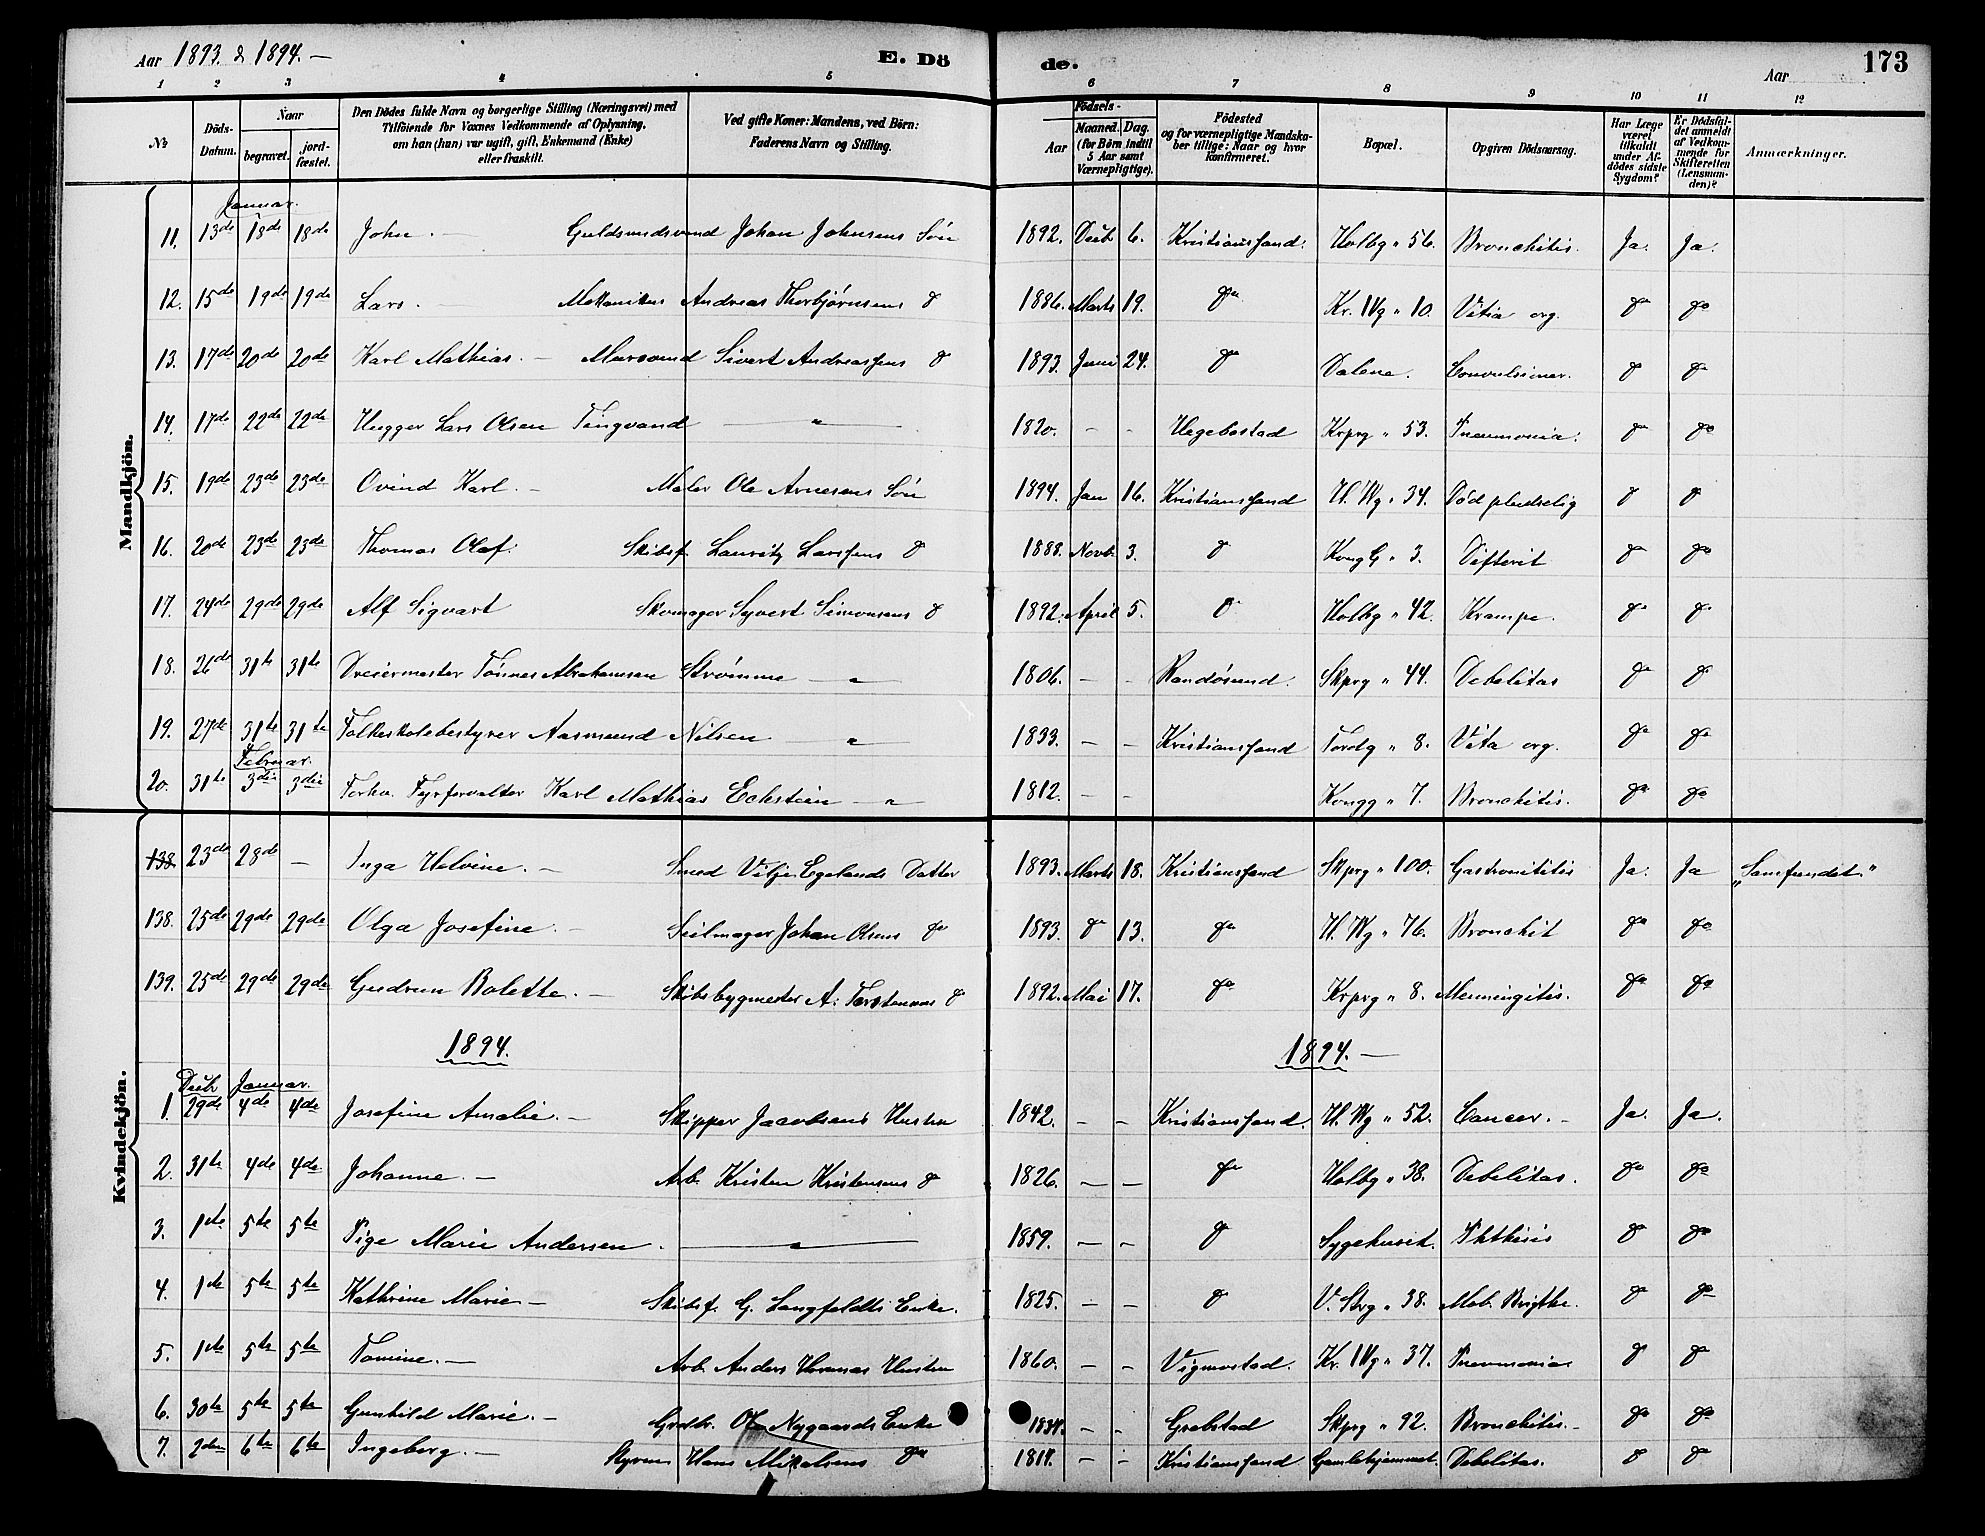 Aar 1893. & 1894. —
E. Dö
de.
Aar
173
1 2 3 4 5 6 7 8 9 10 11 12
№ Döds-Datum. Naar begravet. jord-fæstet. Den Dödes fulde Navn og borgerlige Stilling (Næringsvei) med Tilföiende for Voxnes Vedkommende af Oplysning, om han (hun) var ugift, gift, Enkemand (Enke) eller fraskilt. Ved gifte Koner: Mandens, ved Børn: Faderens Navn og Stilling. Födsels- Aar Maaned. Dag. (for Børn indtil 5 Aar samt Værnepligtige). Födested og for værnepligtige Mandskaber tillige: Naar og hvor konfirmeret. Bopæl. Opgiven Dödsaarsag. Har Læge været tilkaldt under Afdödes sidste Sygdom? Er Dödsfaldet anmeldt af Vedkommende for Skifteretten (Lensmanden)? Anmærkninger.
Mandkjön.
Januar.
11. 13de 18de 18de John. — Johan Johnsens Søn 1892. Decbr 6. Kristianssand. Holbg " 56. Bronchitis. Ja. Ja.
12. 15de 19de 19de Lars. — Mekanikus Andreas Thorbjørnsens do 1886. Marts 19. do Kr. IVg " 10. Vitia org. do do
13. 17de 20de 20de Karl Mathias. — Mursvend Sivert Andreassens do 1893 Juni 24. do Dalene. Convulsioner. do do
14. 17de 22de 22de Lars Olsen Tingvand — " — 1820. - - Hegebostad Krprg " 53. Pneumonia. do do
15. 19de 23de 23de Ovind Karl. — Maler Ole Arnesens Søn 1894. Jan 16. Kristianssand H. Wg " 34. Død pludselig do do
16. 20de 23de 23de Thomas Olaf. Skibsf. Lauritz Larssens do 1888. Novb. 3. do KongG " 3. Difterit do do
17. 24de 29de 29de Alf Sigvart Skomager Syvert Simonsens do 1892. April 5. do Holbg " 42. Krampe. do do
18. 26de 31te 31te Dreiermester Tønnes Abrahamsen Strømme — " — 1806. - - Randøsund. Skprg " 44. Debilitas do do
19. 27de 31te 31te Folkeskolebestyrer Aasmund Nilsen " — 1833. - - Kristianssand Tordg " 8. Vita org. do do
Februar.
20. 31te 3die 3die Forhv. Fyrforvalter Karl Mathias Eckstein — " 1812. - - Kongg " 7. Bronchitis. do do
Kvindekjön.
138. 23de 28de — Inga Helvine. — Smed Vilje Egelands Datter 1893. Marts 18. Kristianssand Skprg " 100. Ja. Ja „Samfundet.“
138. 25de 29de 29de Olga Josefine. — Seilmager Johan Olsens do 1893. do 13. do H. Wg " 76. Bronchit do do
139. 25de 29de 29de Gudrun Bolette. — Skibsbygmester A. do 1892. Mai 17. do Krprg " 8. Menningitis. do do
1894.
1894. —
Decbr Januar.
1. 29de 4de 4de Josefine Amalie. — Skipper Jacobsens Hustru 1842. - - Kristianssand. H. Wg " 52. Cancer. - Ja. Ja.
2. 31te 4de 4de Johanne. — Arb. Kristen Kristensens do 1826. — — do Holbg " 38. Debilitas. do do
3. 1ste 5te 5te Pige Marie Andersen. — " — 1859. — - do Sygehuset. Phthisis do do
4. 1ste 5te 5te Kathrine Marie — Skibsf. G. Langfeldts Enke. 1825. - - do V. Strg " 38. Mob. Brigthe. do do
5. 1ste 5te 5te Tomine. — Arb. Anders Hustru 1860. - - Vigmostad. Kr. IVg " 37. Pneumonia do do
6. 30te 5te 5te Gunhild Marie. — Ole Nygaards Enke - - Skprg " 92. Bronchitis. - do do
7. 2den 6te 6te Ingeborg. — Styrm. Hans Mikalsens do - - Kristianssand Gamlehjemmet. Debilitas. do do